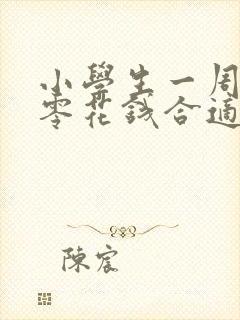 小學生一周
零花錢合適
陳宸